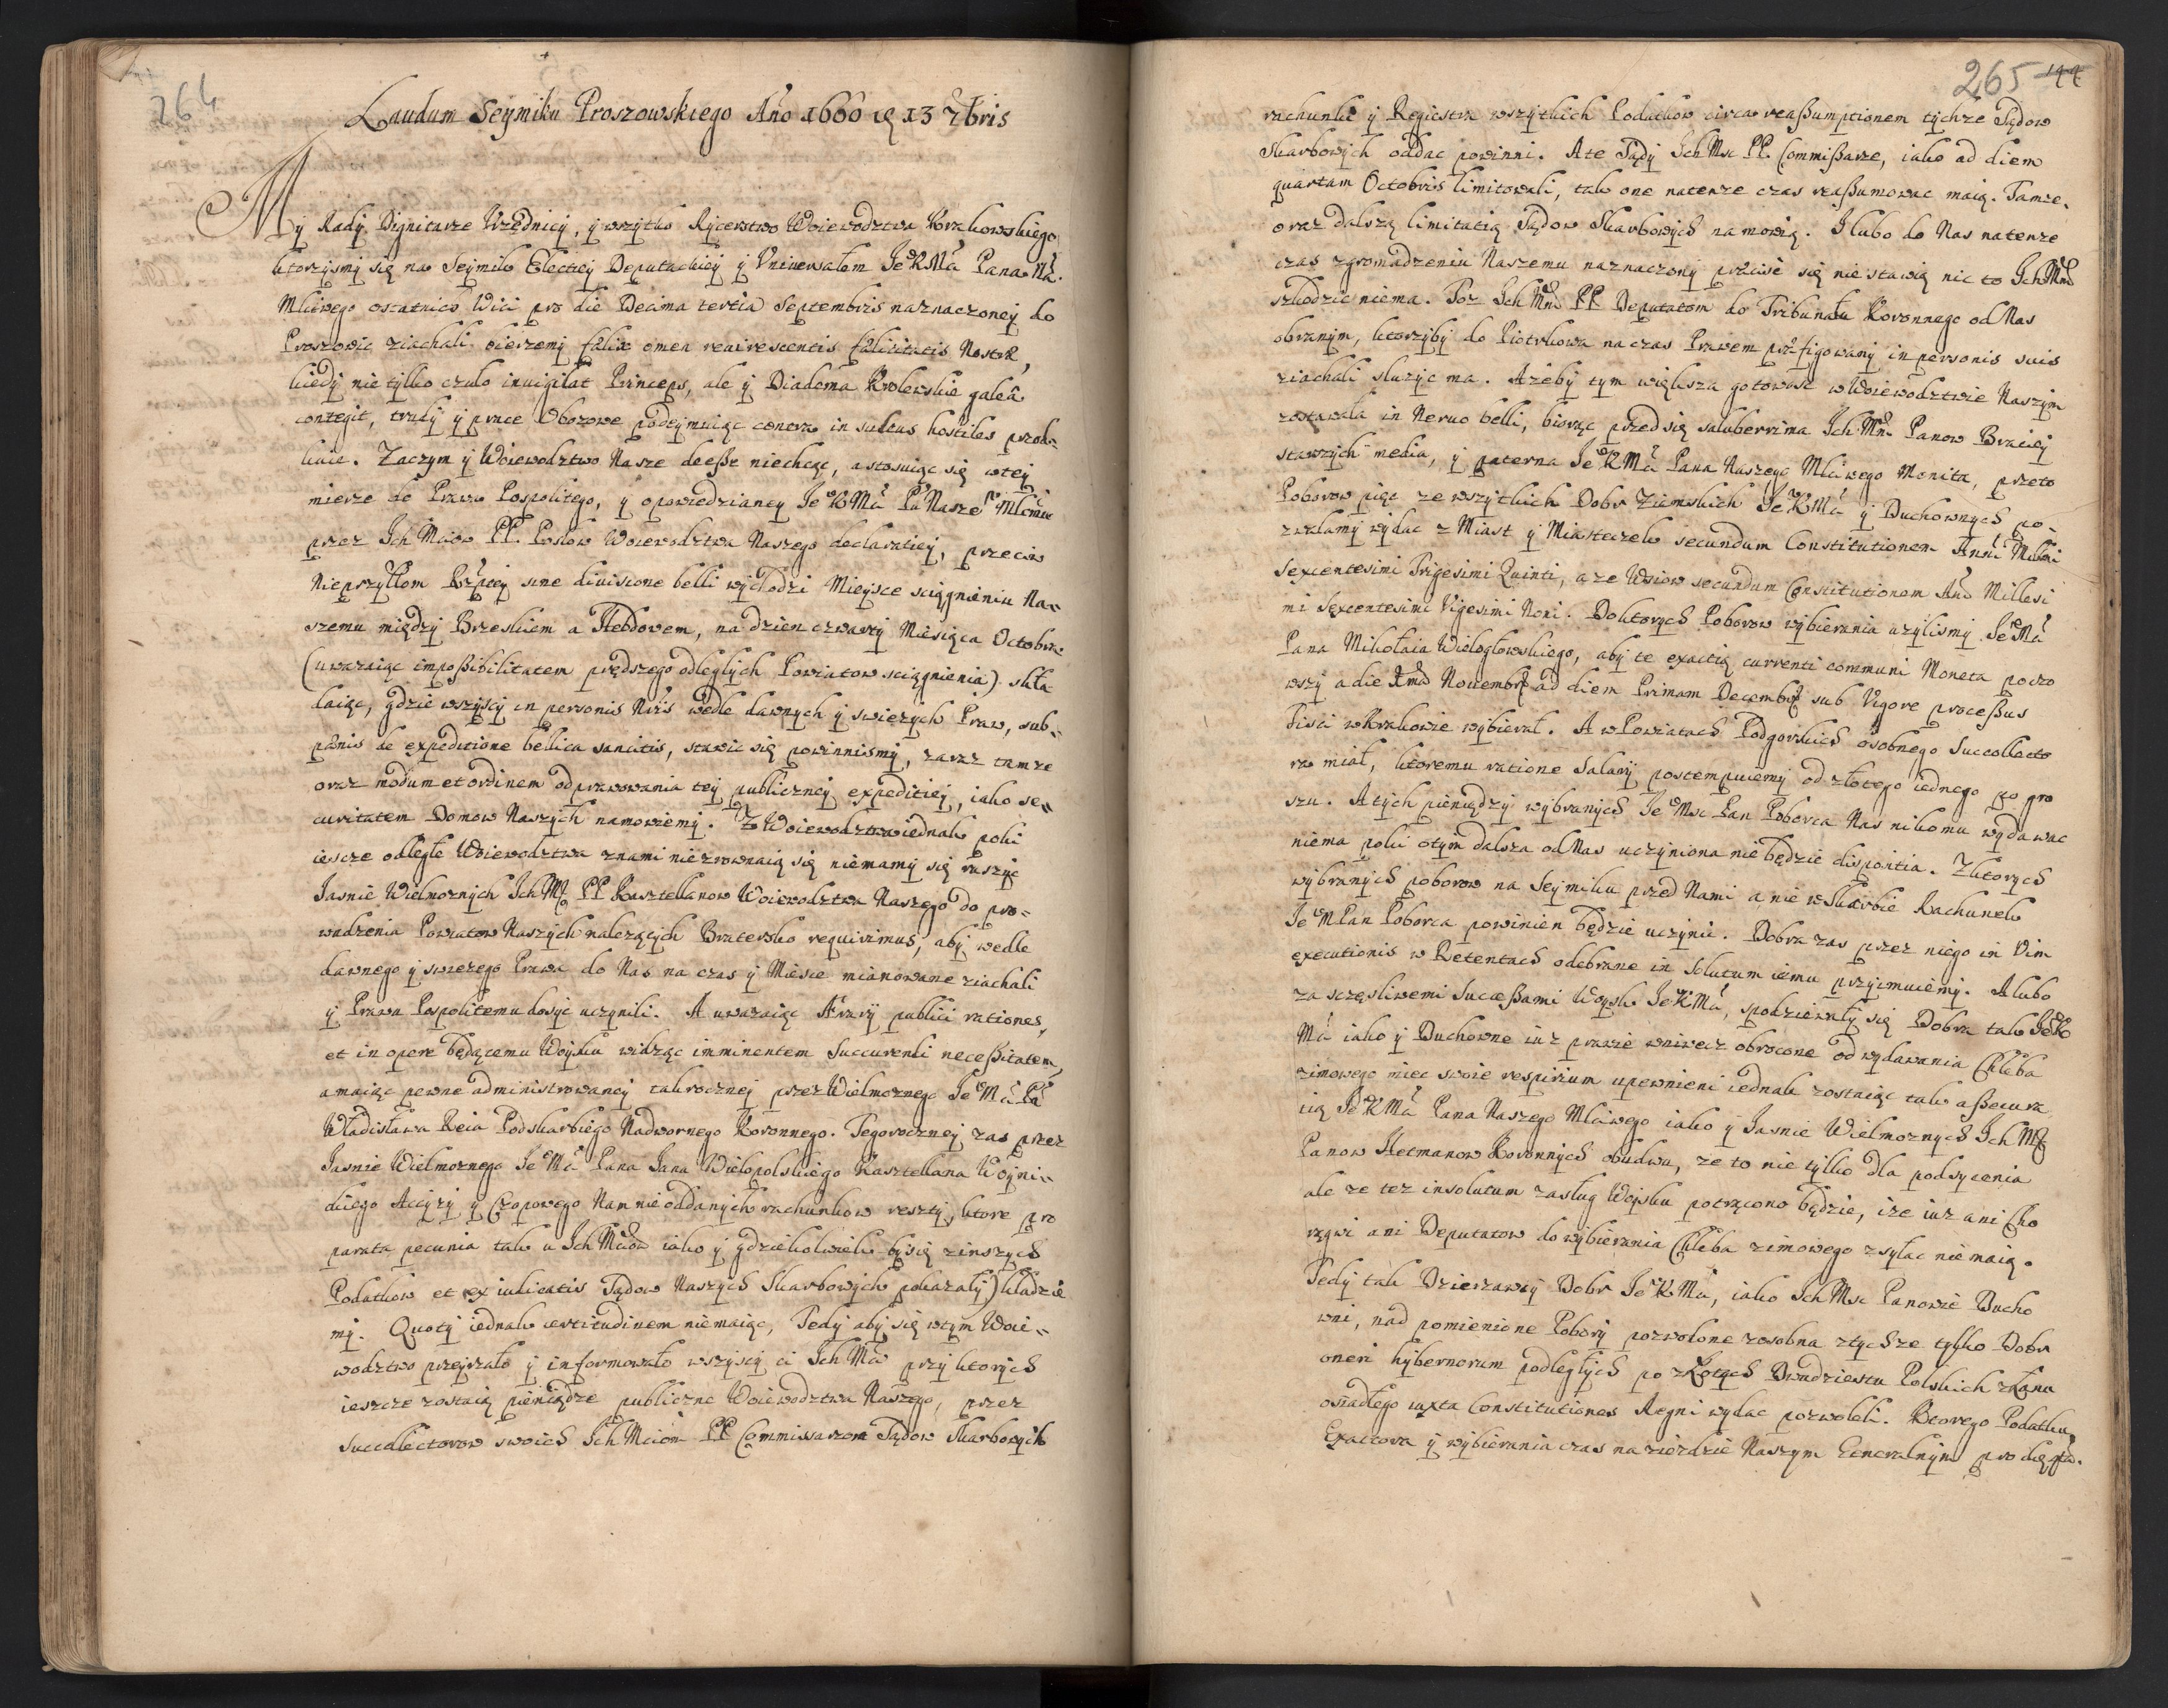 264
Laudum Seymiku Proszowskiego Año 1666 13 7bris
My Rady Dignitarze Vrzędnicy, y wszytko Rycerstwo Woiewodztwa Krakowskiego
ktorzysmy się na Seymik Electiey Deputackiey y Vniuersałem Je KMci Pana N.
Młciwego ostatnich Wici pro die Decima tertia Septembris naznaczoney do
Proszowic ziachali bierzemy fælix omen reuirescentis fælicitatis Nostræ,
kiedy nie tylko czuło inuigilat Princeps, ale y Diadema Krolewskie galeâ
contegit, trudy y prace Obozowe podeymuiąc contra in sultus hostiles przod-
kuie. Zaczym y Woiewodztwo Nasze deesse niechcąc, a stosuiąc się w tey
mierze do Prawa Pospolitego, y opowiedzianey Je KMci Pa Nasze Młomu
przez Ich Mciow PP. Posłow Woiewodztwa Naszego declaratiey, przeciw
Nieprzyłom Rzptey sine diuisione belli wychodzi Mieysce sciągnieniu Na-
szemu między Brzeskiem a Hebdowem, na dzien czwarty Miesiąca Octobra
(uwazaiąc impossibilitatem prędszego odległych Powiatow sciągnienia) skła
daiąc, gdzie wszyscy in personis Nris wedle dawnych y swiezych Praw, sub
pœnis de expeditione bellica sancitis, stawic się powinnismy, zaraz tamze
oraz modum et ordinem odprawowania tey publiczney expeditiey, iako se-
curitatem Domow Naszych namowiemy. Z Woiewodztwa iednak poki
iescze odległe Woiewodztwa znami nie zrownaią się niemamy się ruszyc
Jasnie Wielmoznych Ich M PP Kasztellanow Woiewodztwa Naszego do pro-
wadzenia Powiatow Naszych nalezących Bratersko requirimus, aby wedle
dawnego y swiezego Prawa do Nas na czas y Miesce mianowane ziachali
y Prawu Pospolitemu dosyc uczynili. A uwazaiąc Ærarÿ publici rationes,
et in opere będącemu Woysku widząc imminentem Succurendi necessitatem,
a maiąc pewne administrowaney takroczney przez Wielmoznego Je Mci Pa
Władisława Reia Podskarbiego Nadwornego Koronnego. Tegoroczney zas przez
Jasnie Wielmoznego Je Mci Pana Jana Wielopolskiego Kasztellana Woyni-
ckiego Accyzy y Czopowego Nam nie oddanych rachunkow reszty, ktore pro
parata pecunia tak u Ich Mciow iako y gdziekolwiek by się zinszych
Podatkow et ex iudicatis Sądow Naszych Skarbowych pokazały) kładzie
my. Quoty iednak certitudinem niemaiąc, Tedy aby się wtym Woie-
wodztwo przeyrzało y informowało wszyscy ci Ich Mci przy ktorych
ieszcze zostaią pieniądze publiczne Woiewodztwa Naszego, przez
Succollectorow swoich Ich Mciom PP Commissarzom Sądow Skarbowych
265 144
rachunki y Regiestra wszytkich Podatkow circa reassumptionem tychze Sądow
Skarbowych oddac powinni. A te Sądy Ich Msc PP. Commissarze, iako ad diem
quartam Octobris limitowali, tak one natenze czas reassumowac maią. Tamze,
oraz dalszą limitatią Sądow Skarbowych namowią. I lubo do Nas natenze
czas zgromadzeniu Naszemu naznaczony præcise się nie stawią nic to Ich Mciom
szkodzic niema. Toz Ich Mciom PP Deputatom do Tribunału Koronnego od Nas
obranym, ktorzyby do Piotrkowa na czas Prawem præfigowany in personis suis
ziachali słuzyc ma. Azeby tym większa gotowosc w Woiewodztwie Naszym
zostawała in Neruo belli, biorąc przed się saluberrima Ich Mm Panow Braciey
starszych media, y paterna Je KMci Pana Naszego Młciwego Monita, przeto
Poborow pięc ze wszytkich Dobr Ziemskich Je KMci y Duchownych po-
zwalamy wydac z Miast y Miasteczek secundum Constitutionem Anni Millmi
Sexcentesimi Trigesimi Quinti, a ze Wsiow secundum Constitutionem Anō Millesi
mi Sexcentesimi Vigesimi Noni. Do ktorych Poborow wybierania uzylismy Je Mci
Pana Mikołaia Wielogłowskiego, aby te exactią currenti communi Moneta poczo
wszy a die Ima Nouembr ad diem Primam Decembr sub Vigore processus
Fisci w Krakowie wybierał. A w Powiatach Podgorskich osobnego Succollecto
ra miał, ktoremu ratione Salarÿ postempuiemy od złotego iednego po gro
szu. A tych pieniędzy wybranych Je Msc Pan Poborca Nas nikomu wydawac
niema poki o tym dalsza od Nas uczyniona nie będzie dispositia. Zktorych
wybranych poborow na Seymiku przed Nami a nie w Skarbie Rachunek
Je M Pan Poborca powinien będzie uczynic. Dobra zas przez niego in Vim
executionis w Retentach odebrane in Solutum iemu przyimuiemy. A lubo
za scęsliwemi Successami Woysk Je KMci, spodziewały się Dobra tak Je K
Mci iako y Duchowne iuz prawie wniwecz obrocone od wydawania Chleba
zimowego miec swoie respirium upewnieni iednak zostaiąc tak assecura
tią Je KMci Pana Naszego Młciwego iako y Jasnie Wielmoznych Ich M
Panow Hetmanow Koronnych obudwu, ze to nie tylko dla podsycenia
ale ze tez insolutum zasług Woysku potrącono będzie, ize iuz ani Cho
rągwi ani Deputatow do wybierania Chleba zimowego zsyłac niemaią.
Tedy tak Dzierzawcy Dobr Je KMci, iako Ich Msc Panowie Ducho
wni, nad pomienione Pobory pozwolone zosobna ztychze tylko Dobr
oneri hybernorum podległych po złotych Dwudziestu Polskich z Łanu
osiadłego iuxta Constitutiones Regni wydac pozwoleli. Ktorego Podatku,
Exactora y wybierania czas na ziezdzie Naszym Generalnym pro die